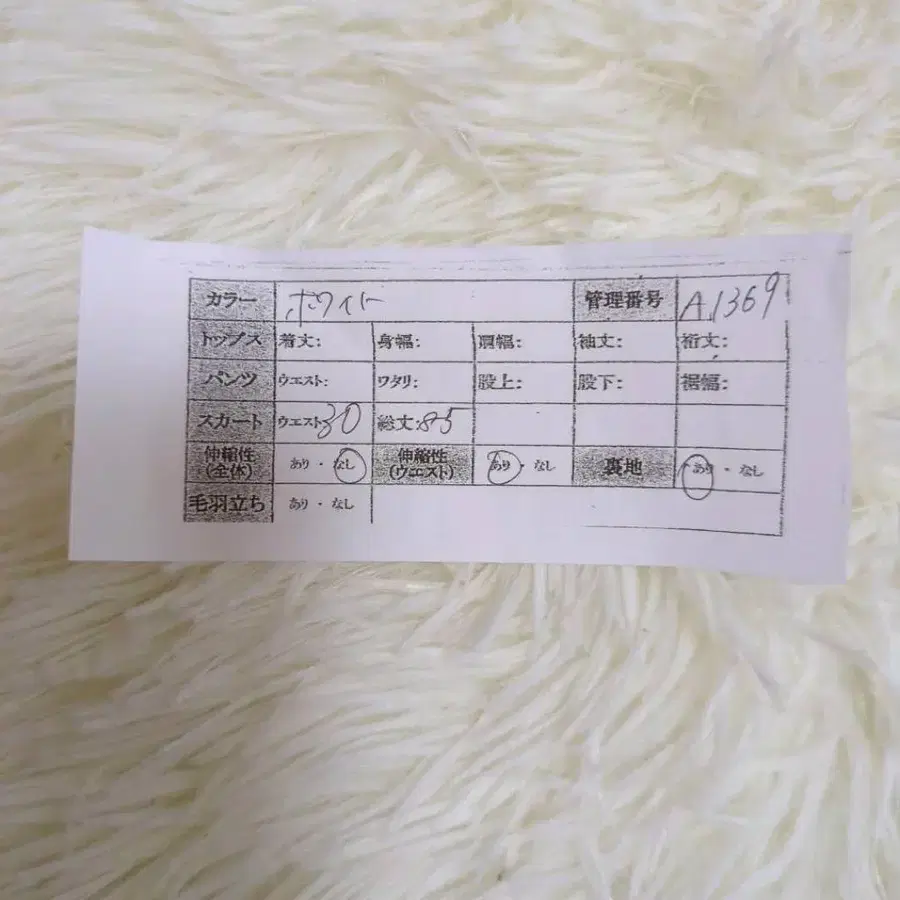 カラー ホワイト 管理番号 A.1369
トップス 着丈: 身幅: 肩幅: 袖丈: 裄丈:
パンツ ウエスト: ワタリ: 股上: 股下: 裾幅:
スカート ウエスト30 総丈:85
伸縮性(全体) あり・なし 伸縮性(ウエスト) あり・なし 裏地 あり・なし
毛羽立ち あり・なし